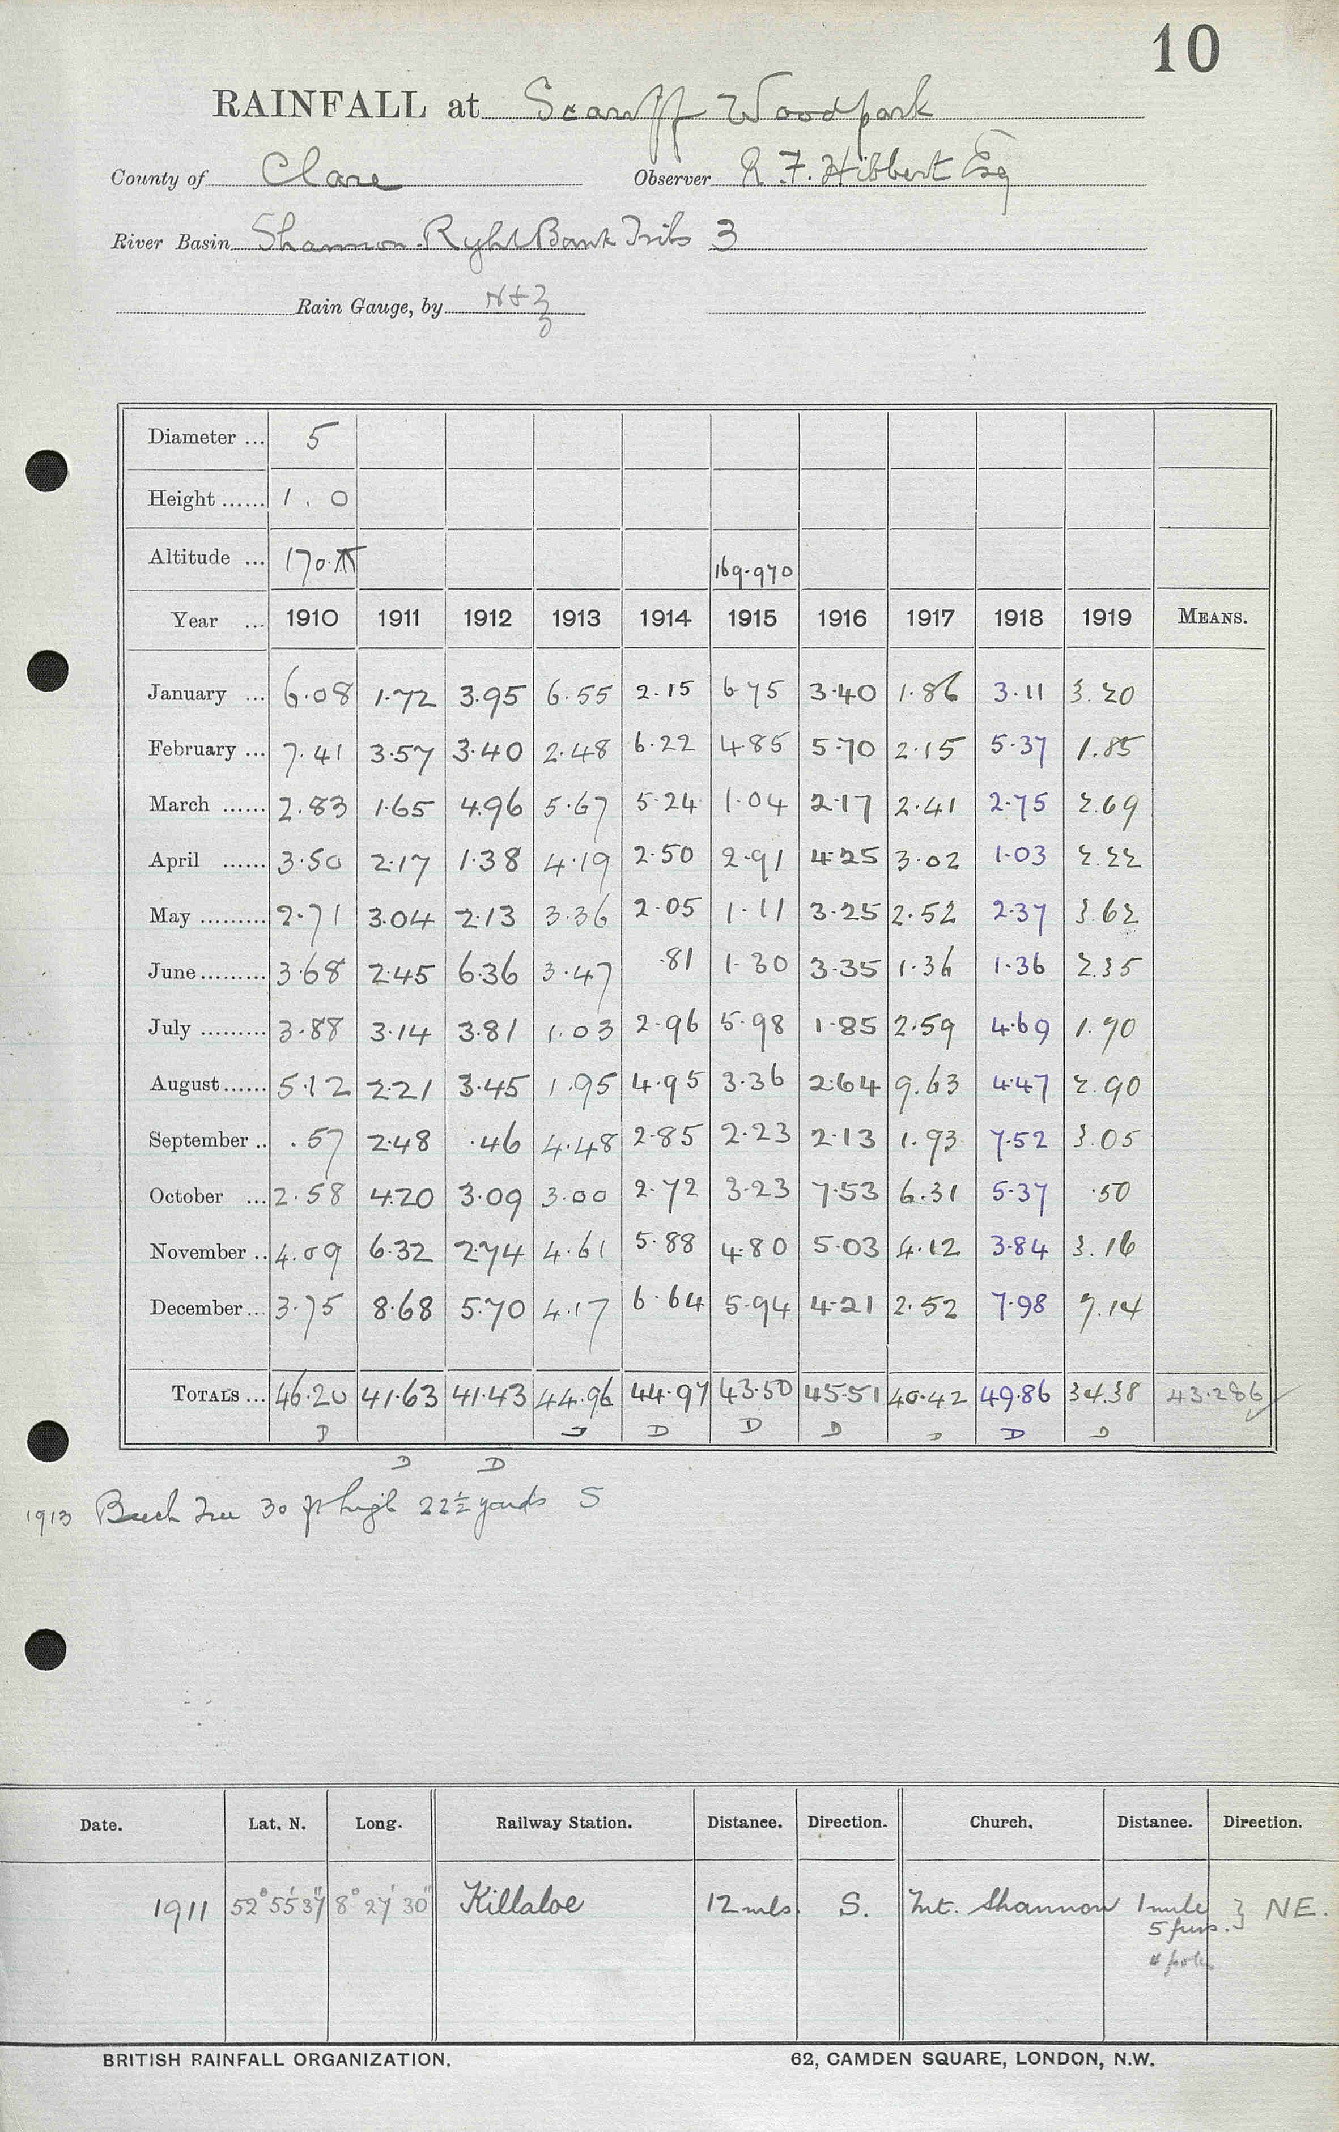 10
RAINFALL at Scariff Woodpark
County of Clare Observer R. F. Hibbert Esq
River Basin Shannon. Right Bank Tribs 3
Rain Gauge, by N+Z
Diameter ... 5
Height ...... 1. 0
Altitude ... 170. 169.970
Year ... 1910 1911 1912 1913 1914 1915 1916 1917 1918 1919 MEANS.
January ... 6.08 1.72 3.95 6.55 2.15 6.75 3.40 1.86 3.11 3.20
February ... 7.41 3.57 3.40 2.48 6.22 4.85 5.70 2.15 5.37 1.85
March ...... 2.83 1.65 4.96 5.67 5.24 1.04 2.17 2.41 2.75 2.69
April ...... 3.50 2.17 1.38 4.19 2.50 2.91 4.25 3.02 1.03 2.22
May ......... 2.71 3.04 2.13 3.36 2.05 1.11 3.25 2.52 2.37 3.62
June ......... 3.68 2.45 6.36 3.47 .81 1.30 3.35 1.36 1.36 2.35
July ......... 3.88 3.14 3.81 1.03 2.96 5.98 1.85 2.59 4.69 1.70
August ...... 5.12 2.21 3.45 1.95 4.95 3.36 2.64 9.63 4.47 2.90
September .. .57 2.48 .46 4.48 2.85 2.23 2.13 1.93 7.52 3.05
October ... 2.58 4.20 3.09 3.00 2.72 3.23 7.53 6.31 5.37 .50
November .. 4.09 6.32 2.74 4.61 5.88 4.80 5.03 4.12 3.84 3.16
December ... 3.75 8.68 5.70 4.17 6.64 5.94 4.21 2.52 7.98 7.14
TOTALS ... 46.20 41.63 41.43 44.96 44.97 43.50 45.51 40.42 49.86 34.38 43.286
D D D D D D D D
D D
1913 Beech Tree 30 ft high 22½ yards S
Date. Lat. N. Long. Railway Station. Distance. Direction. Church. Distance. Direction.
1911 52° 55' 37" 8° 27' 30" Killaloe 12 mls. S. Mt. Shannon 1 mile } NE.
5 furs.
4 poles
BRITISH RAINFALL ORGANIZATION. 62, CAMDEN SQUARE, LONDON, N.W.